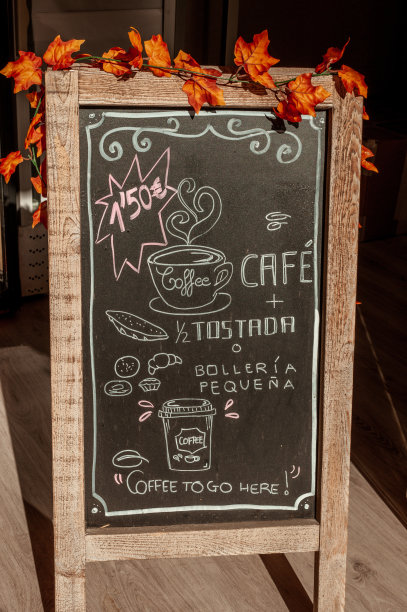 1'50€
Coffee
CAFÉ
+
½ TOSTADA
o
BOLLERÍA
PEQUEÑA
COFFEE
"COFFEE TO GO HERE!"